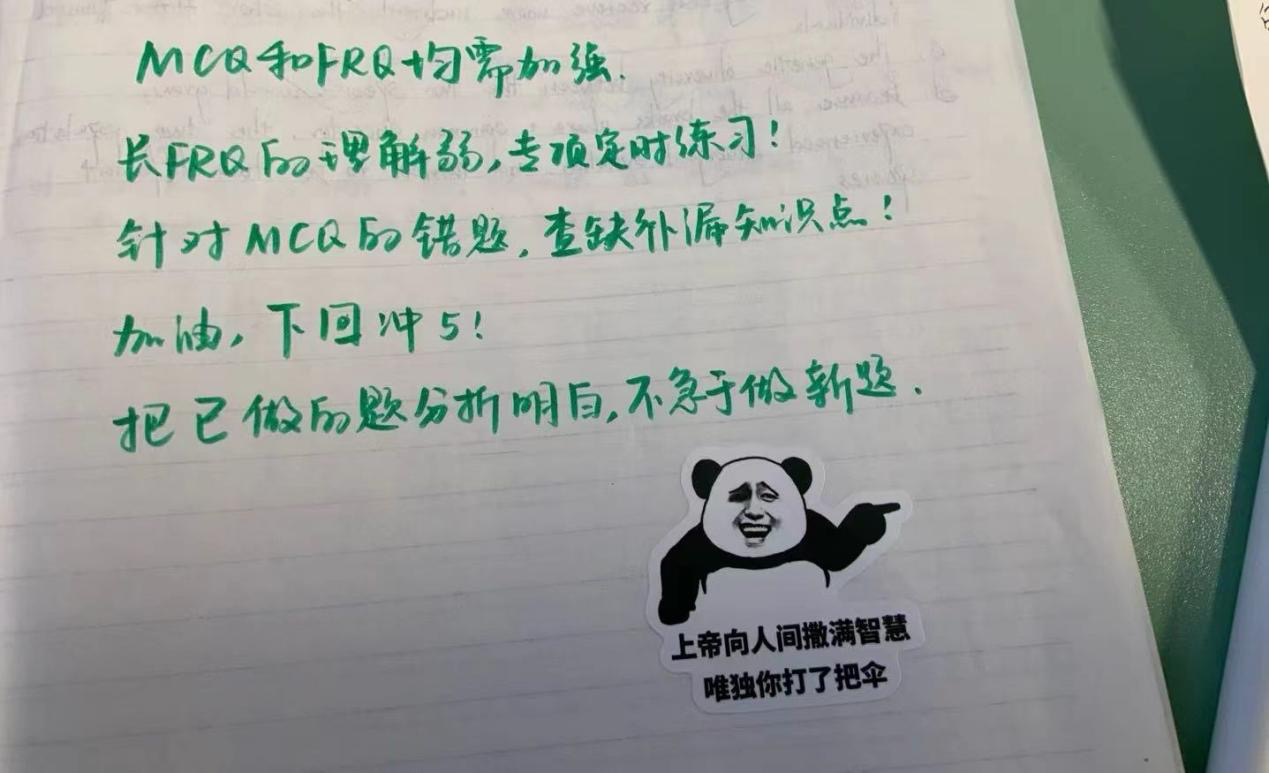 MCQ和FRQ均需加强.
长FRQ的理解弱,专项定时练习!
针对MCQ的错题,查缺补漏知识点!
加油,下回冲5!
把已做的题分析明白,不急于做新题.
上帝向人间撒满智慧
唯独你打了把伞